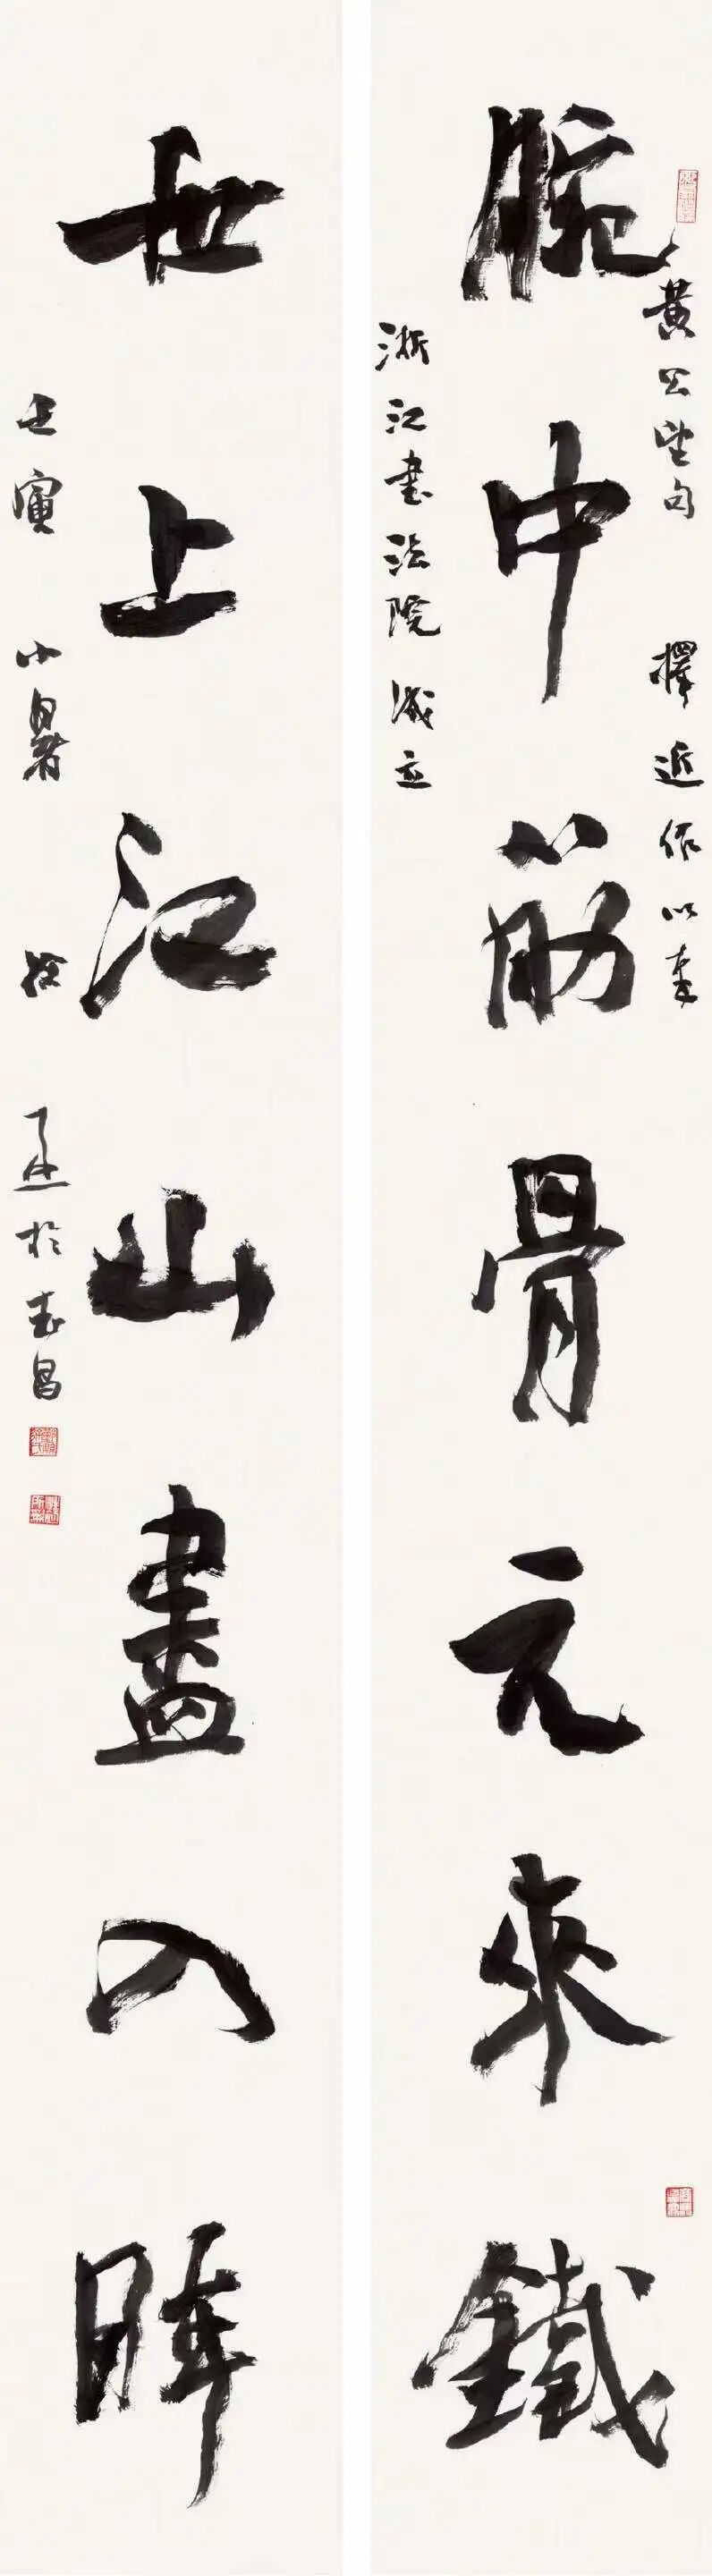 腕中筋骨元來鐵
世上江山盡入眸
黃公望句
擇近作以奉
浙江書法院成立
壬寅
小暑
於武昌